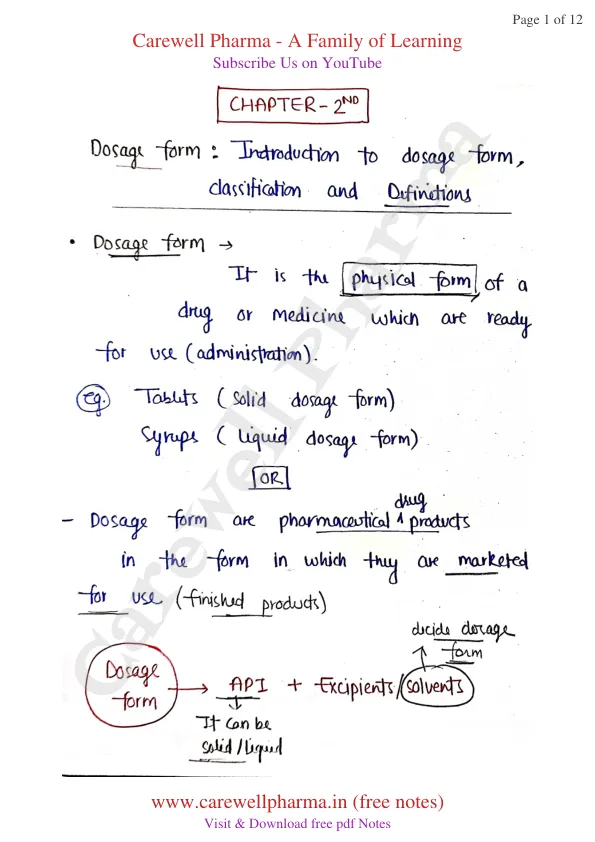 Page 1 of 12
Carewell Pharma - A Family of Learning
Subscribe Us on YouTube
CHAPTER - 2ND
Dosage form : Introduction to dosage form,
classification and Definitions
• Dosage form →
It is the physical form of a
drug or medicine which are ready
for use (administration).
eg. Tablets ( Solid dosage form)
Syrups ( liquid dosage form)
OR
drug
- Dosage form are pharmaceutical ^ products
in the form in which they are marketed
for use (finished products)
decide dosage
form
Dosage form → API + Excipients/solvents
It can be
solid/liquid
Carewell Pharma
www.carewellpharma.in (free notes)
Visit & Download free pdf Notes